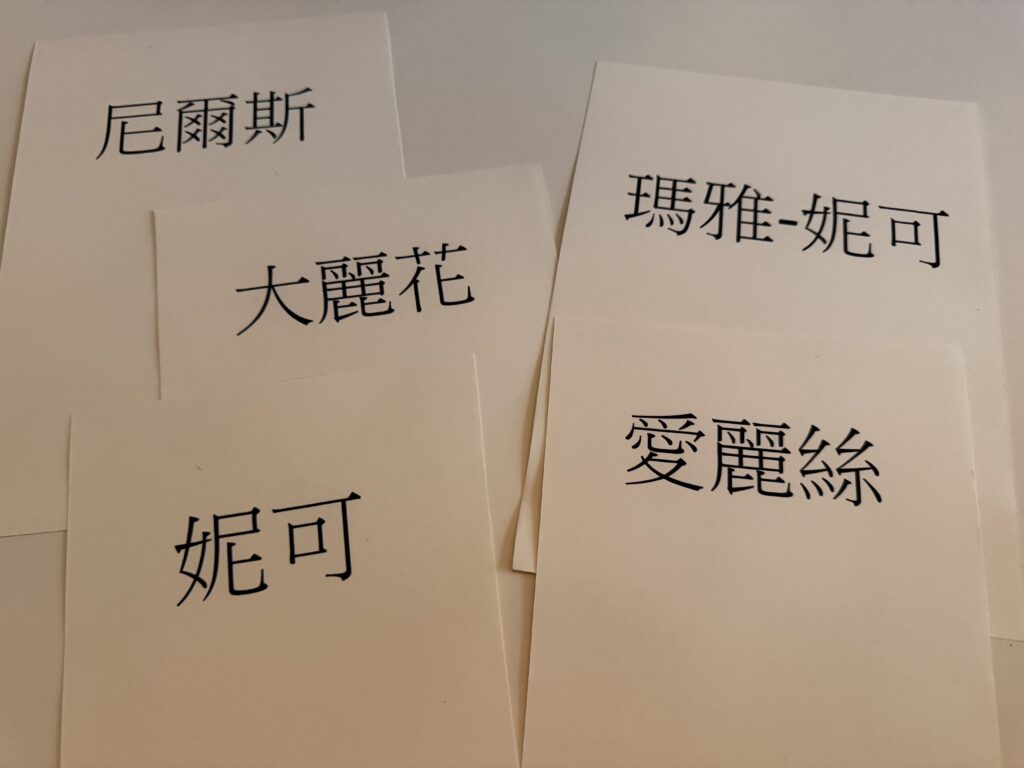 尼爾斯
大麗花
妮可
瑪雅-妮可
愛麗絲